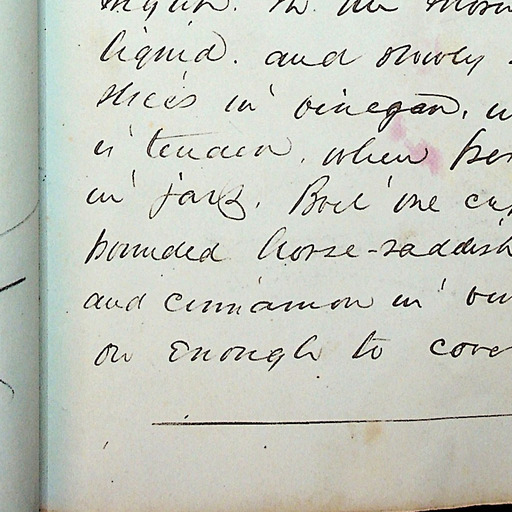 night. In the morn
liquid. and slowly
slices in vinegar, u
is tender, when per
in jars. Boil one cup
pounded horse-raddish
and cinnamon in vin
or enough to cover